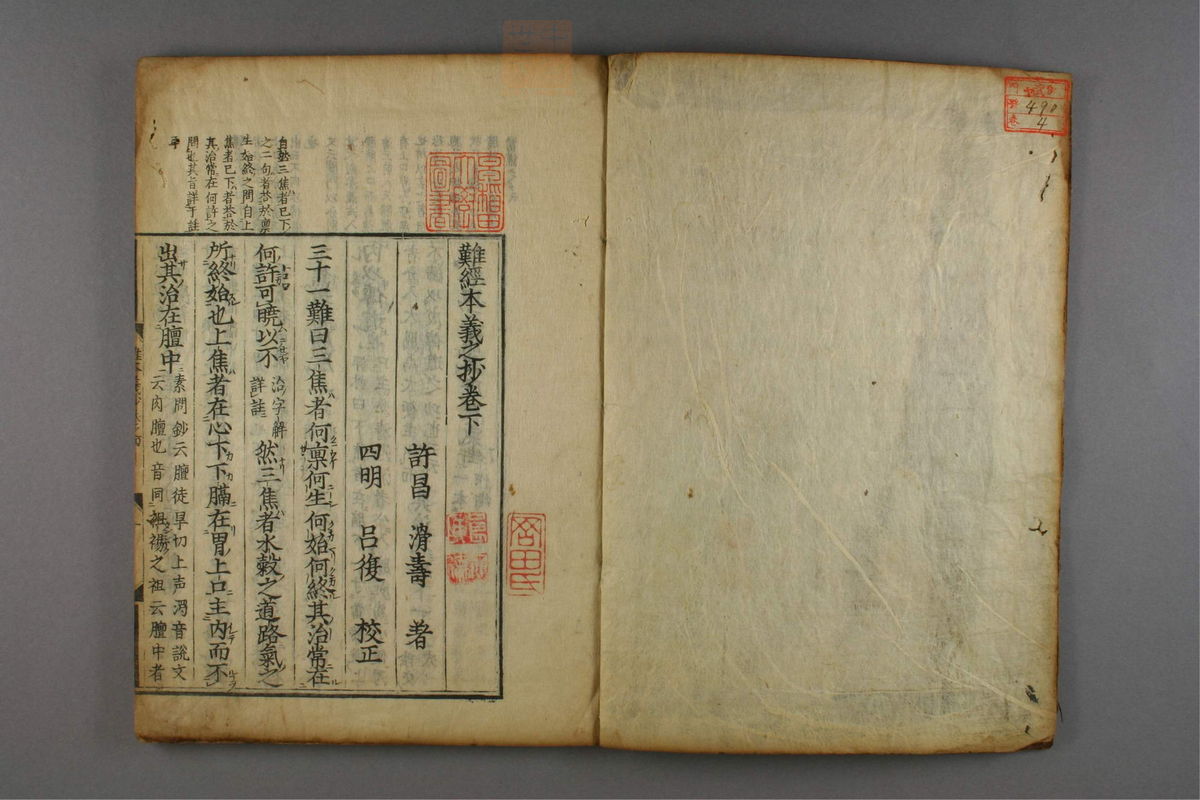 難經本義之抄卷下
許昌 滑壽 著
四明 呂復 校正
三十一難曰三焦者何稟何生何始何終其治常在
何許可曉以不 治字解詳註 然三焦者水穀之道路氣之
所終始也上焦者在心下下膈在胃上口主内而不
出其治在膻中 素問鈔云膻徒旱切上声 音說文
云肉膻也音同 之祖云膻中者
自然三焦者已下
之二句者答於稟
生始終之問自上
焦者已下者答於
其治常在何許之
問也其旨詳于註
490
4